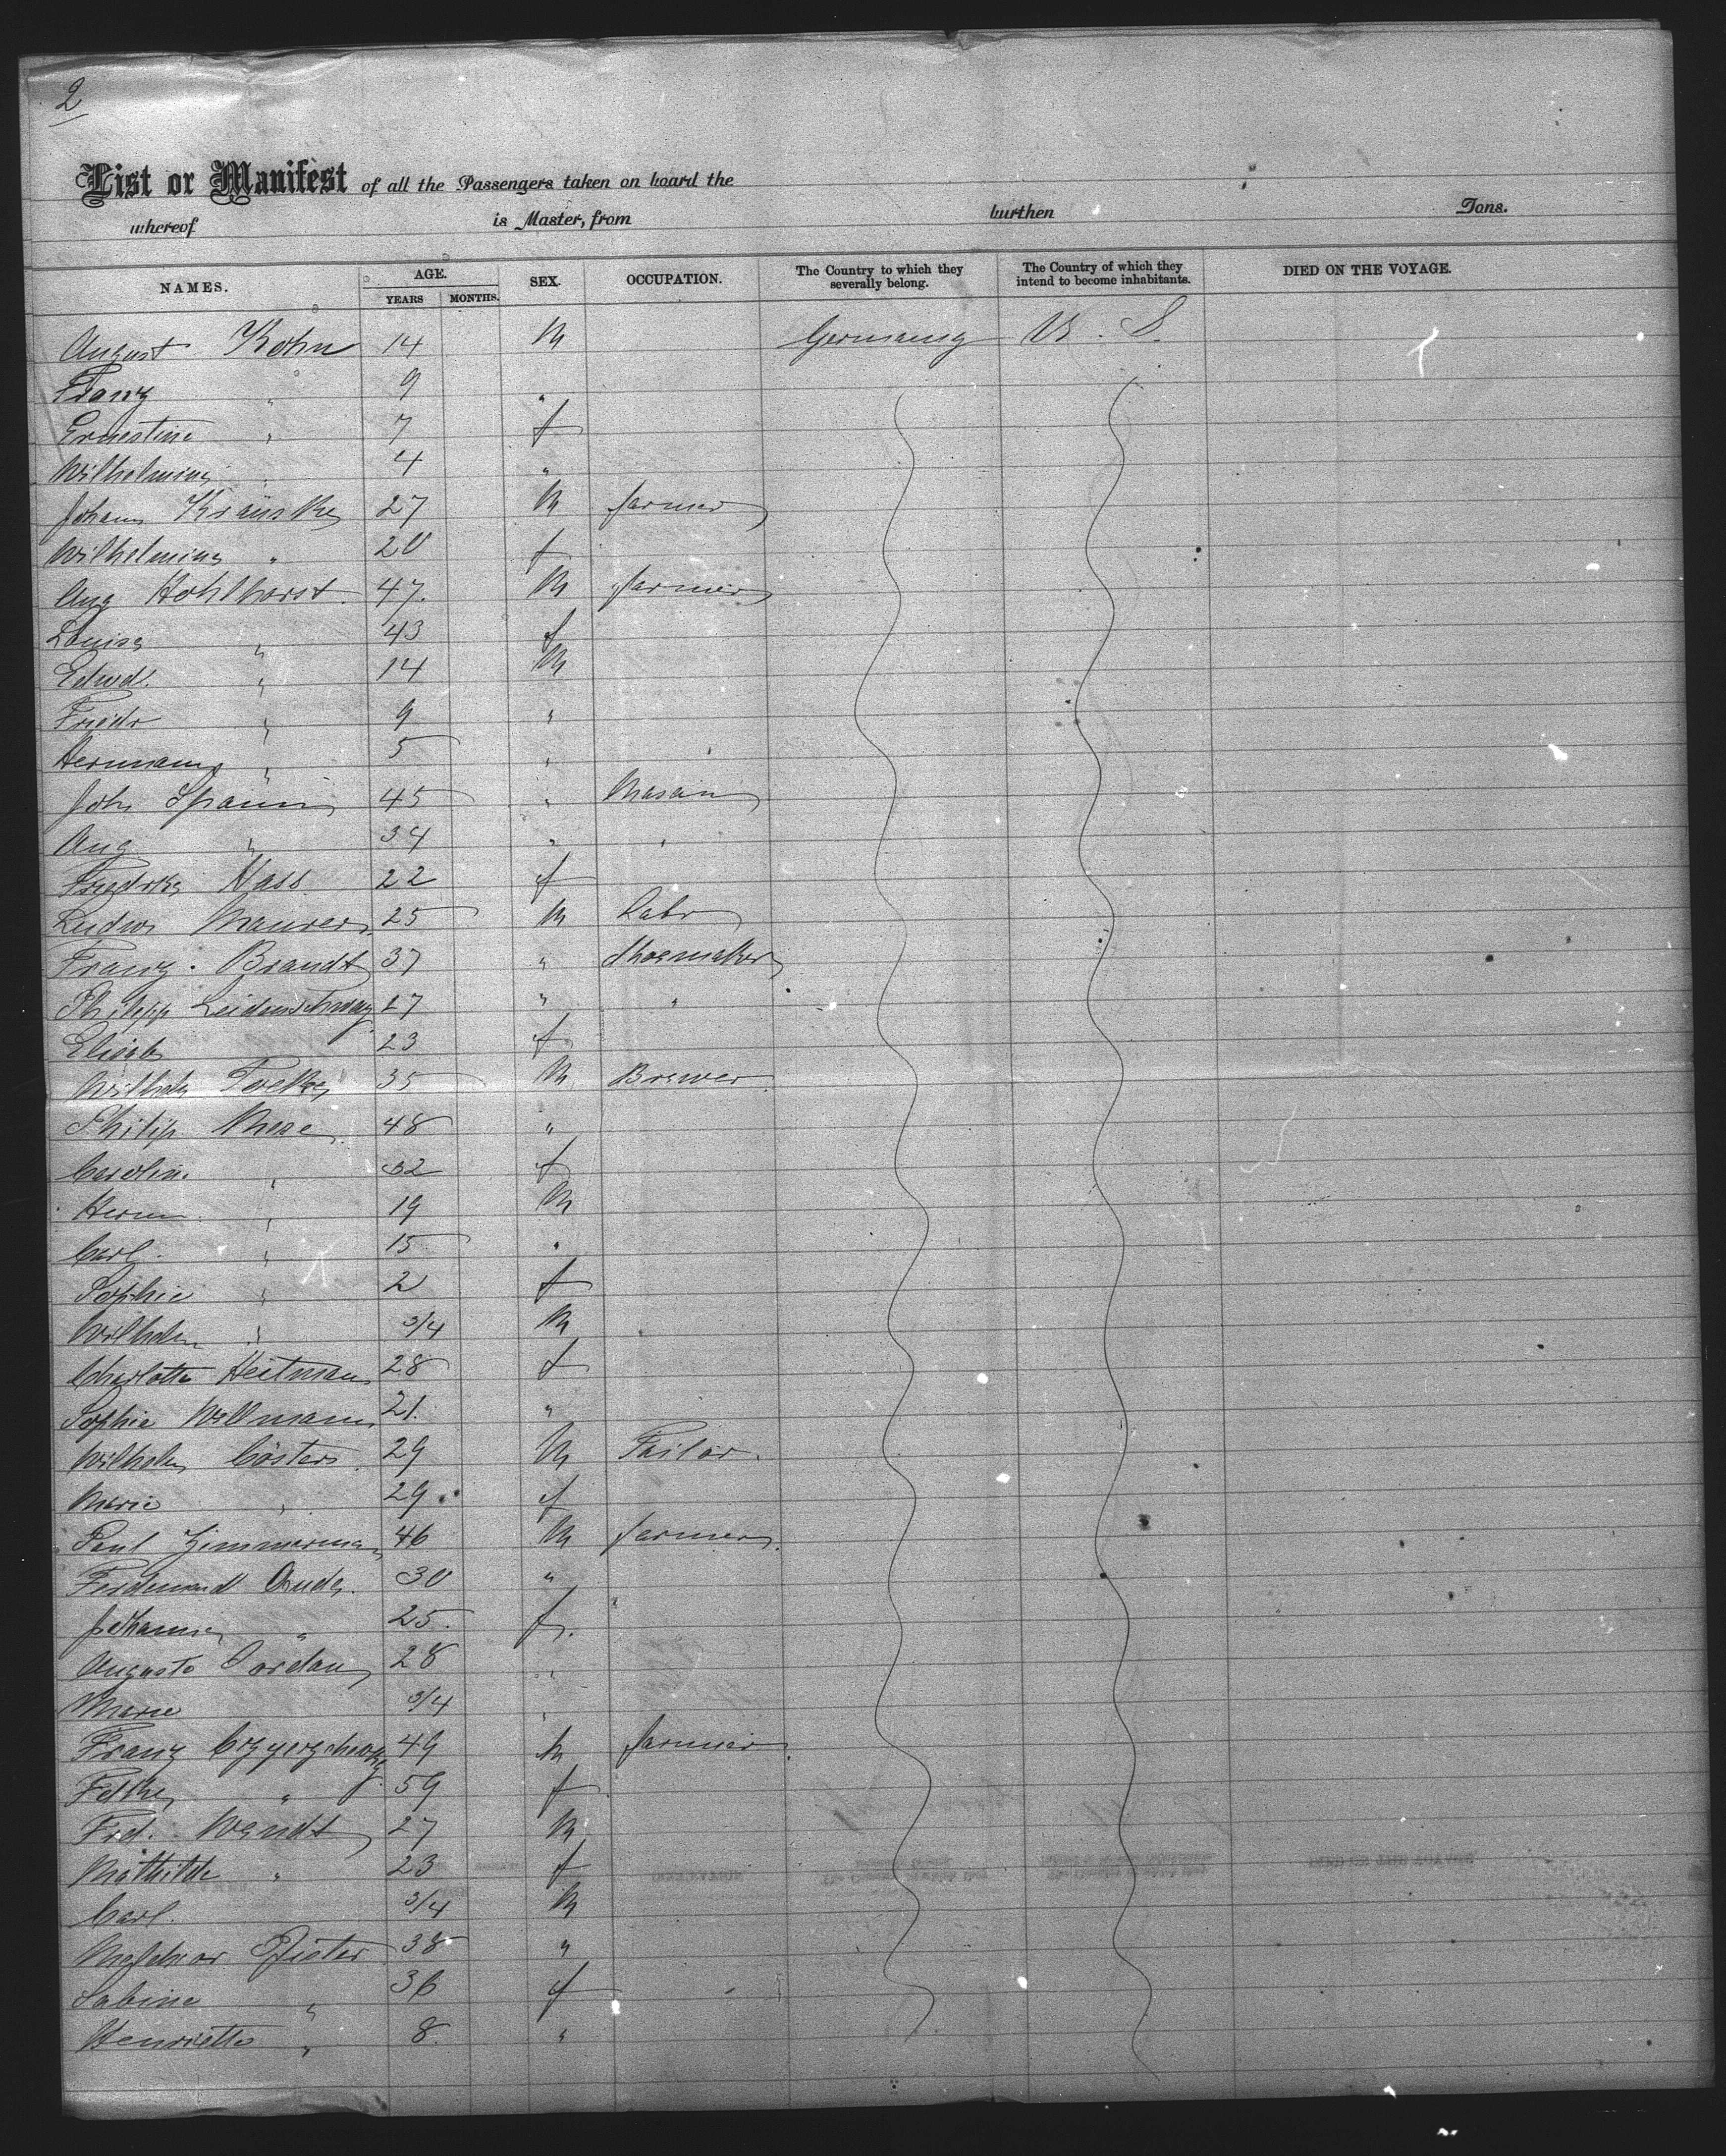 2
List or Manifest of all the Passengers taken on board the
whereof is Master, from burthen Tons.
NAMES. AGE. YEARS MONTHS. SEX. OCCUPATION. The Country to which they severally belong. The Country of which they intend to become inhabitants. DIED ON THE VOYAGE.
August Kohn 14 M Germany U. S.
Franz " 9 "
Ernestine " 7 f
Wilhelmina " 4 "
Johann 27 M farmer
Wilhelmina " 20 f
Aug Hohlhorst 47. M farmer
Louisa " 43 f
Edwd. " 14 M
Friedr " 9 "
Hermann " 5 "
Joh Spann 45 " Mason
Aug " 34 " "
Fredrka Hass 22 f
Ludw Maurer 25 M Labr
Franz Brandt 37 " Shoemaker
Philipp 27 " "
Elisab 23 f
Wilhelm 35 M Brewer
Philip 48 "
Carolin " 32 f
Herm " 19 M
Carl " 15 "
Sophie " 2 f
Wilhelm " 3/4 M
Charlotte Heitman 28 f
Sophie Willmann 21. "
Wilhelm Cösters 29 M Tailor.
Marie " 29 f
Paul Zimmerman 46 M farmer
Ferdinand 30 "
Johanna " 25 f.
Auguste Jordan 28 "
Marie 3/4 "
Franz 49 M farmer
" 59 f
Frd. Wendt 27 M
Mathilde " 23 f
Carl. 3/4 M
Melchior 38 "
Sabine " 36 f
Henriette " 8. "